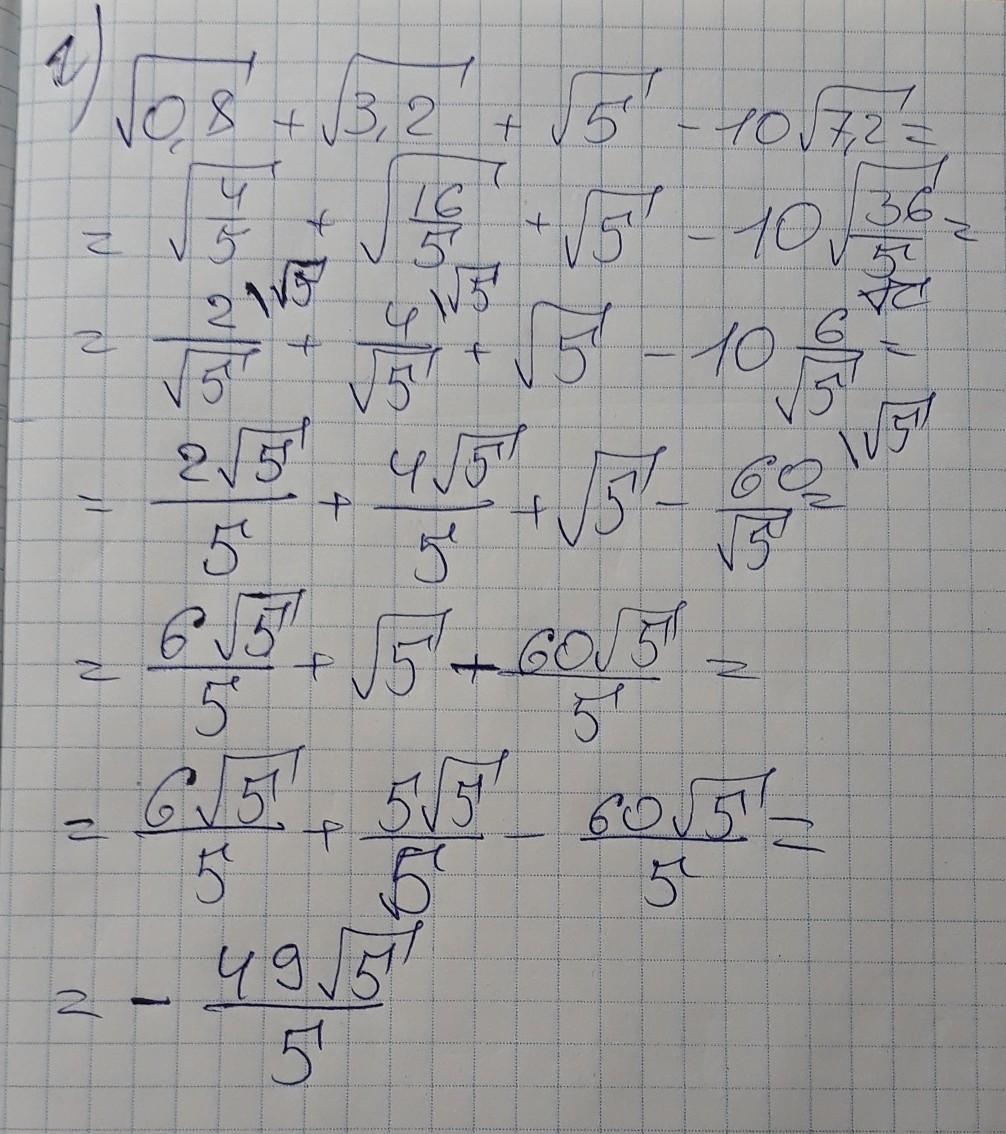 г) √0,8 + √3,2 + √5 - 10√7,2 =
= √(4/5) + √(16/5) + √5 - 10√(36/5) =
= 2\√5/√5 + 4\√5/√5 + √5 - 10 6/√5 =
= 2√5/5 + 4√5/5 + √5 - 60\√5/√5 =
= 6√5/5 + √5 - 60√5/5 =
= 6√5/5 + 5√5/5 - 60√5/5 =
= - 49√5/5